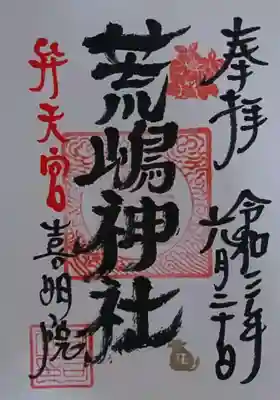 奉拝
令和二年
六月二十日
荒嶋神社
弁天宮
喜明院